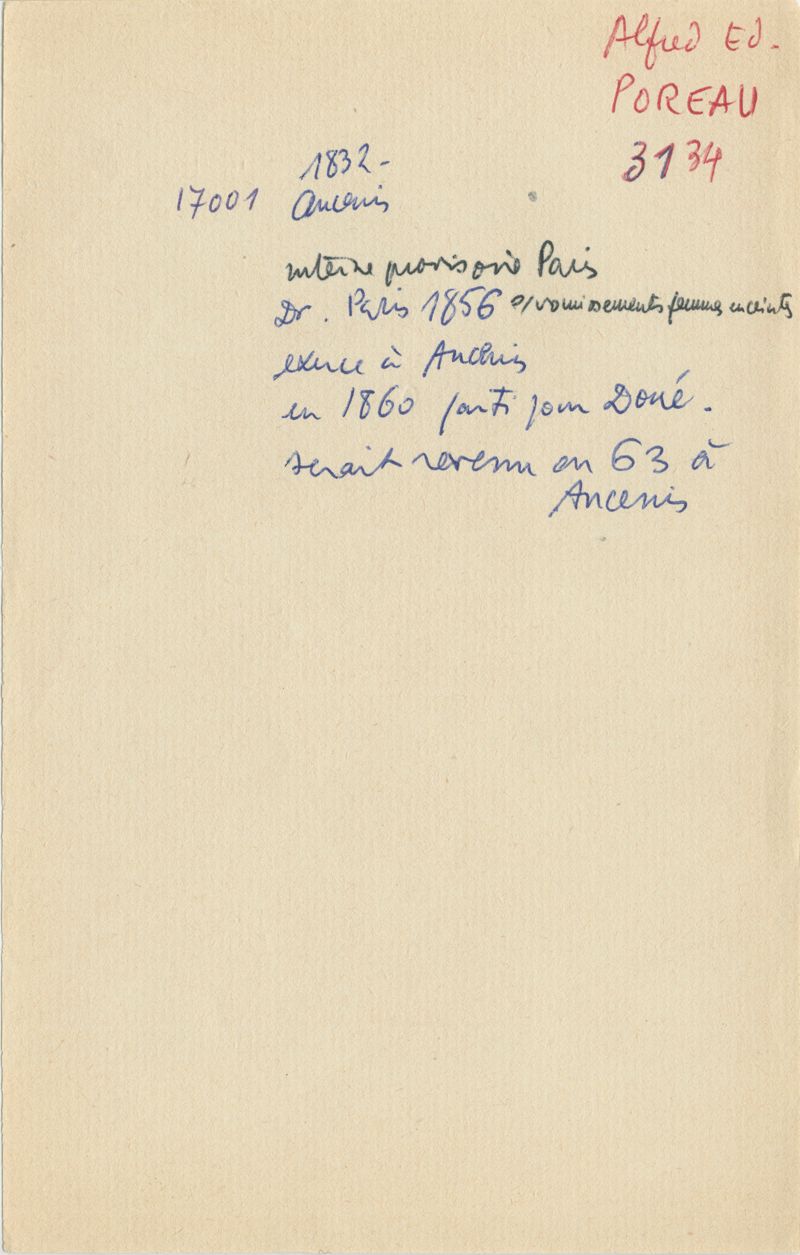 Alfred Ed.
POREAU
3134
1832-
17001 Ancenis
interne provisoire Paris
Dr. Paris 1856 s/vomissements femmes enceintes
exerce à Ancenis
en 1860 parti pour Doué.
serait revenu en 63 à
Ancenis